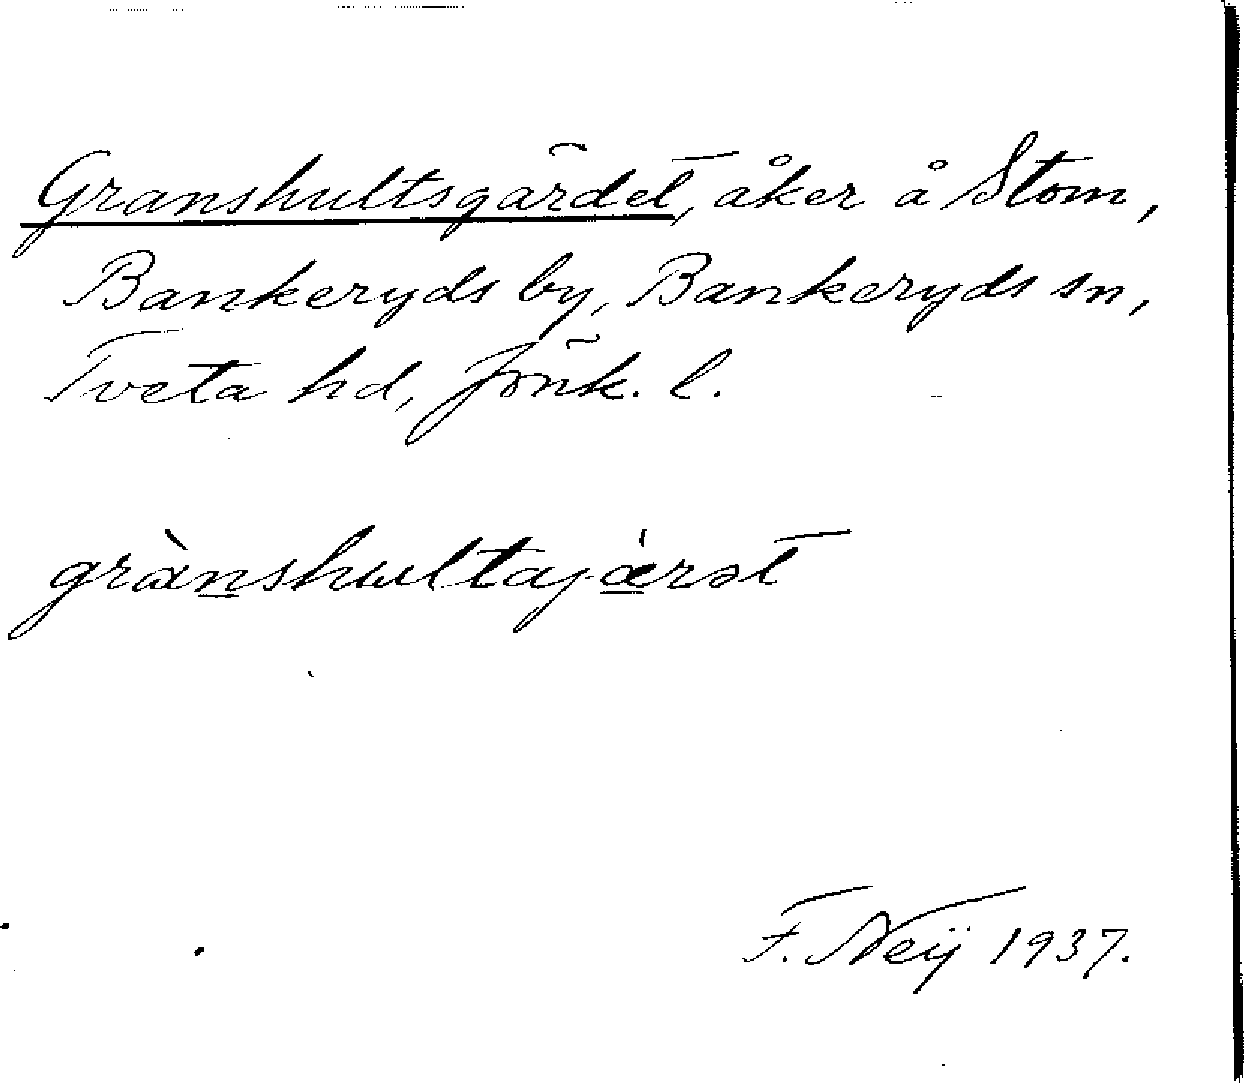 Granshultsgärdet, åker å Stom,
Bankeryds by, Bankeryds sn,
Tveta hd, Jönk. l.
grànshultajǽrət
F. Neij 1937.